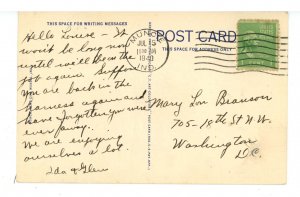 THIS SPACE FOR WRITING MESSAGES
POST CARD
THIS SPACE FOR ADDRESS ONLY
MUNCIE
JUL 15
1940
IND.
Hello Louise - It
won't be long now
until we'll be on the
job again. Suppose
You are back in the
harness again and
have forgotten you were
ever away.
We are enjoying
ourselves a lot.
Ida & Glen
Mary Lou Branson
705-18th St N.W.
Washington
D.C.